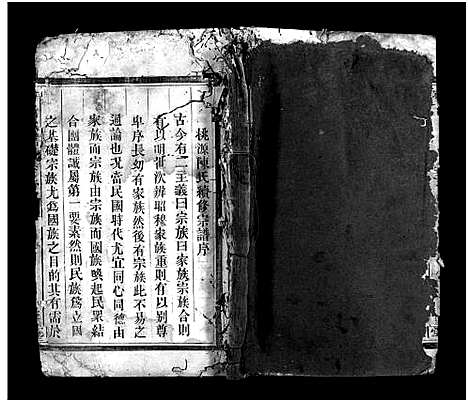 桃源陳氏續修宗譜序
古今有二主義曰宗族曰家族宗族合則
有以明徵次辨昭穆家族重則有以别尊
卑序長幼有家族然後有宗族此不易之
通論也况當民國時代尤宜同心同德由
家族而宗族由宗族而國族喚起民眾結
合團體誠屬第一要素然則民族爲立國
之基礎宗族尤爲國族之目的其有需於